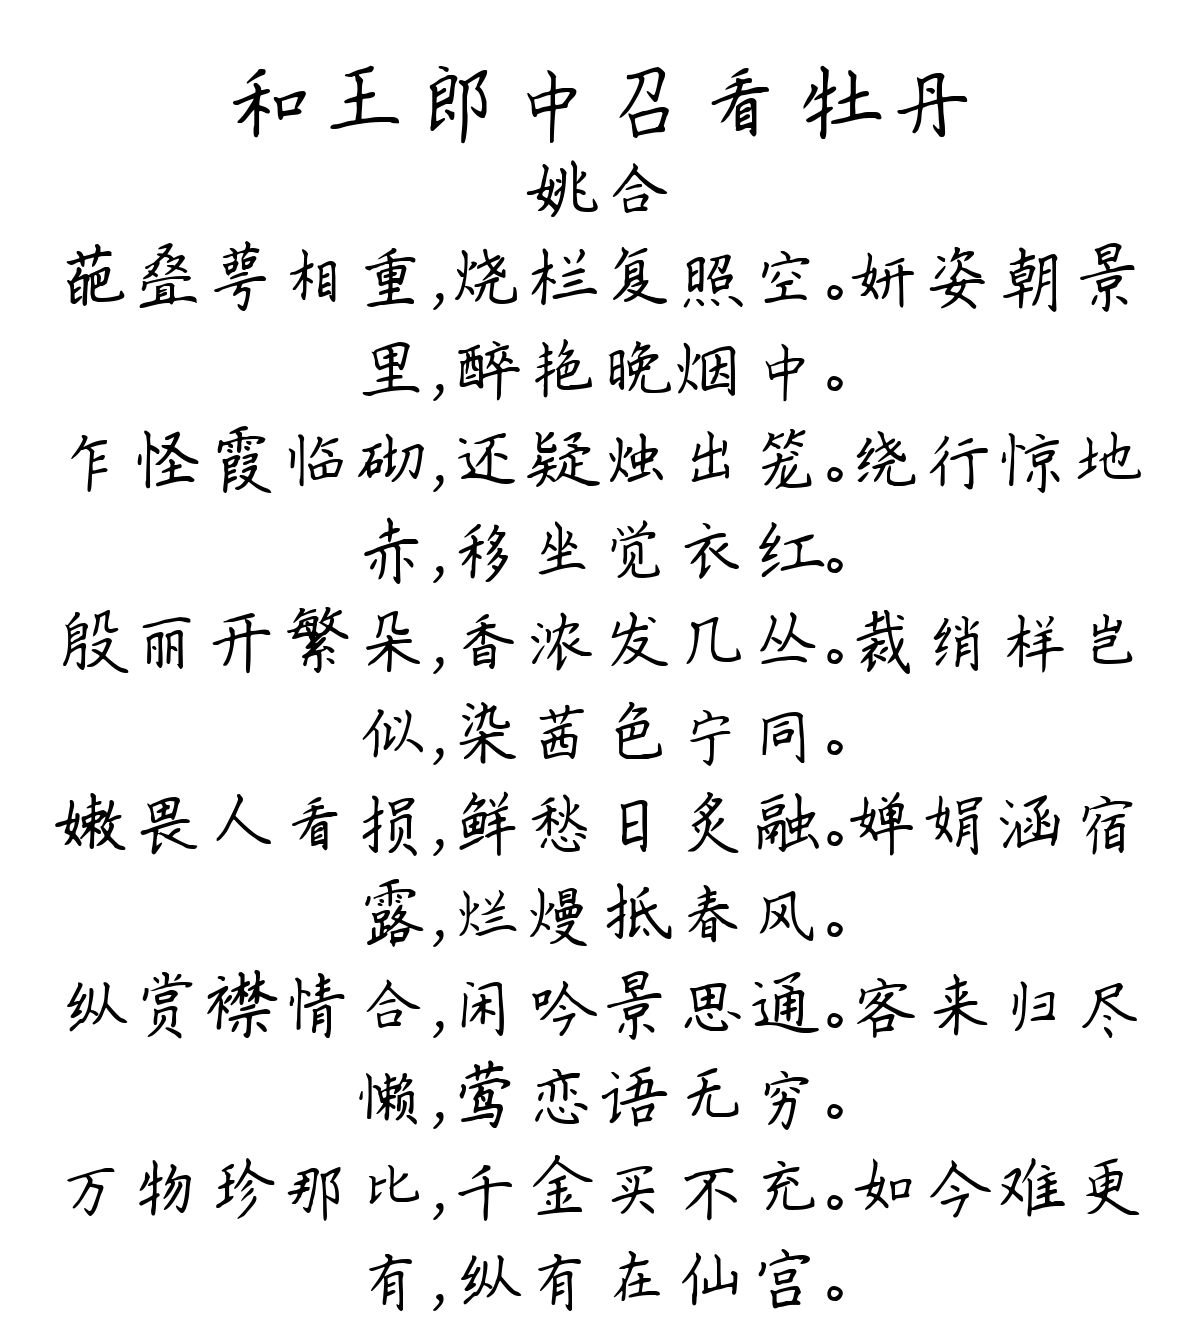 和王郎中召看牡丹
姚合
葩叠萼相重,烧栏复照空。妍姿朝景
里,醉艳晚烟中。
乍怪霞临砌,还疑烛出笼。绕行惊地
赤,移坐觉衣红。
殷丽开繁朵,香浓发几丛。裁绡样岂
似,染茜色宁同。
嫩畏人看损,鲜愁日炙融。婵娟涵宿
露,烂熳抵春风。
纵赏襟情合,闲吟景思通。客来归尽
懒,莺恋语无穷。
万物珍那比,千金买不充。如今难更
有,纵有在仙宫。